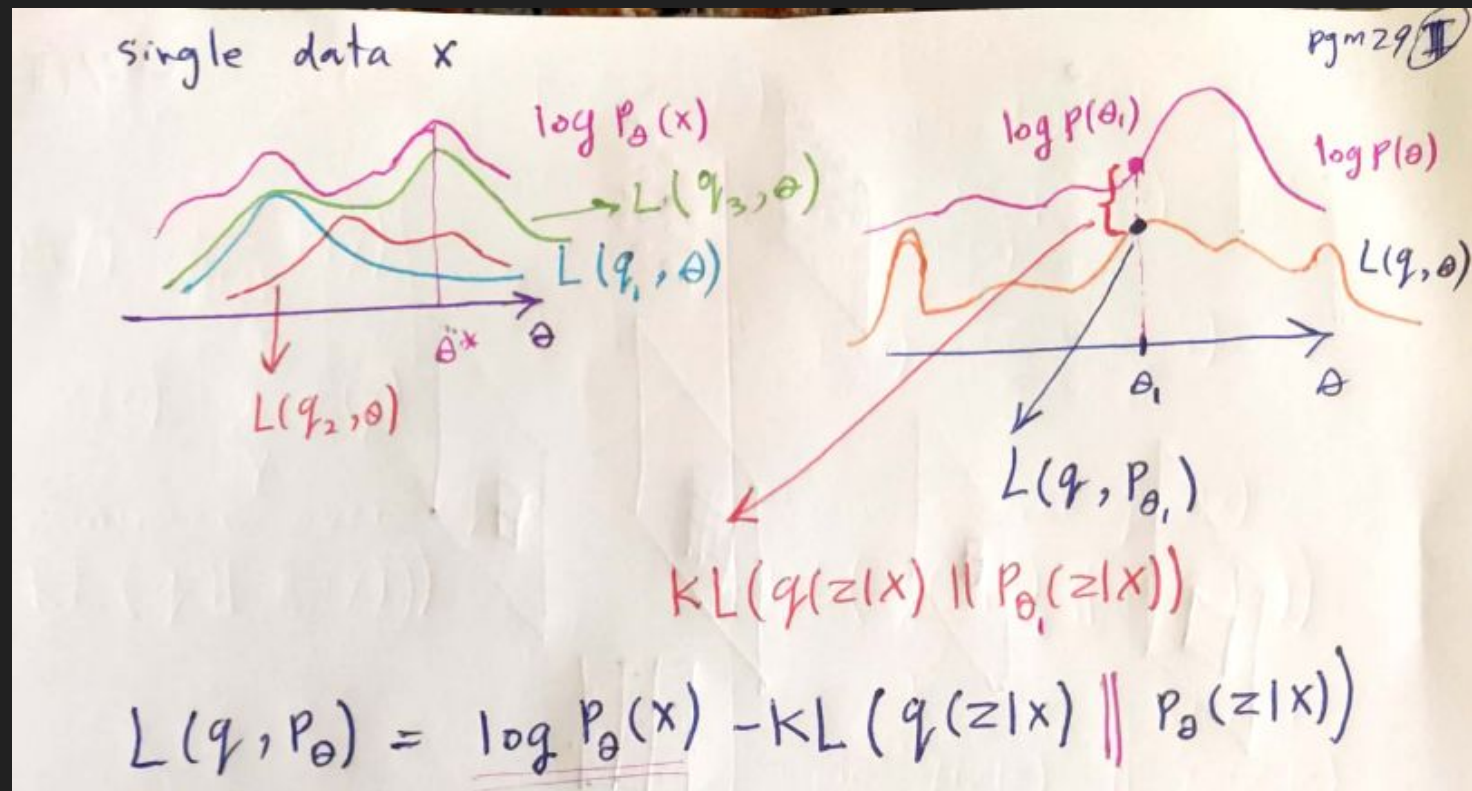 single data x
pgm29 II
log Pθ(x)
L(q₃, θ)
L(q₁, θ)
θ
L(q₂, θ)
log P(θ₁)
log P(θ)
L(q, θ)
θ₁
θ
L(q, Pθ₁)
KL(q(z|x) || Pθ₁(z|x))
L(q, Pθ) = log Pθ(x) - KL(q(z|x) || Pθ(z|x))